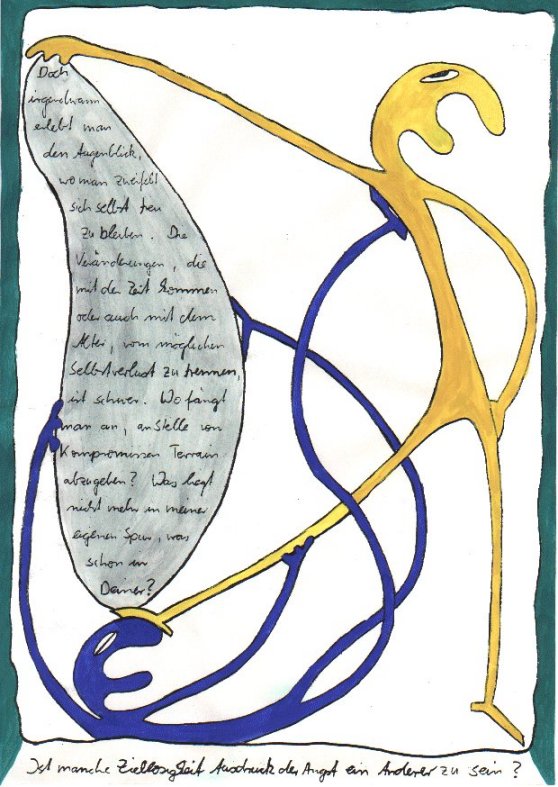 Doch
irgendwann
erlebt man
den Augenblick,
wo man zweifelt
sich selbst treu
zu bleiben. Die
Veränderungen, die
mit der Zeit kommen
oder auch mit dem
Alter, vom möglichen
Selbstverlust zu trennen,
ist schwer. Wo fängt
man an, anstelle von
Kompromissen Terrain
abzugeben? Was liegt
nicht mehr in meiner
eigenen Spur, was
schon in
Deiner?
Ist manche Ziellosigkeit Ausdruck der Angst ein Anderer zu sein?